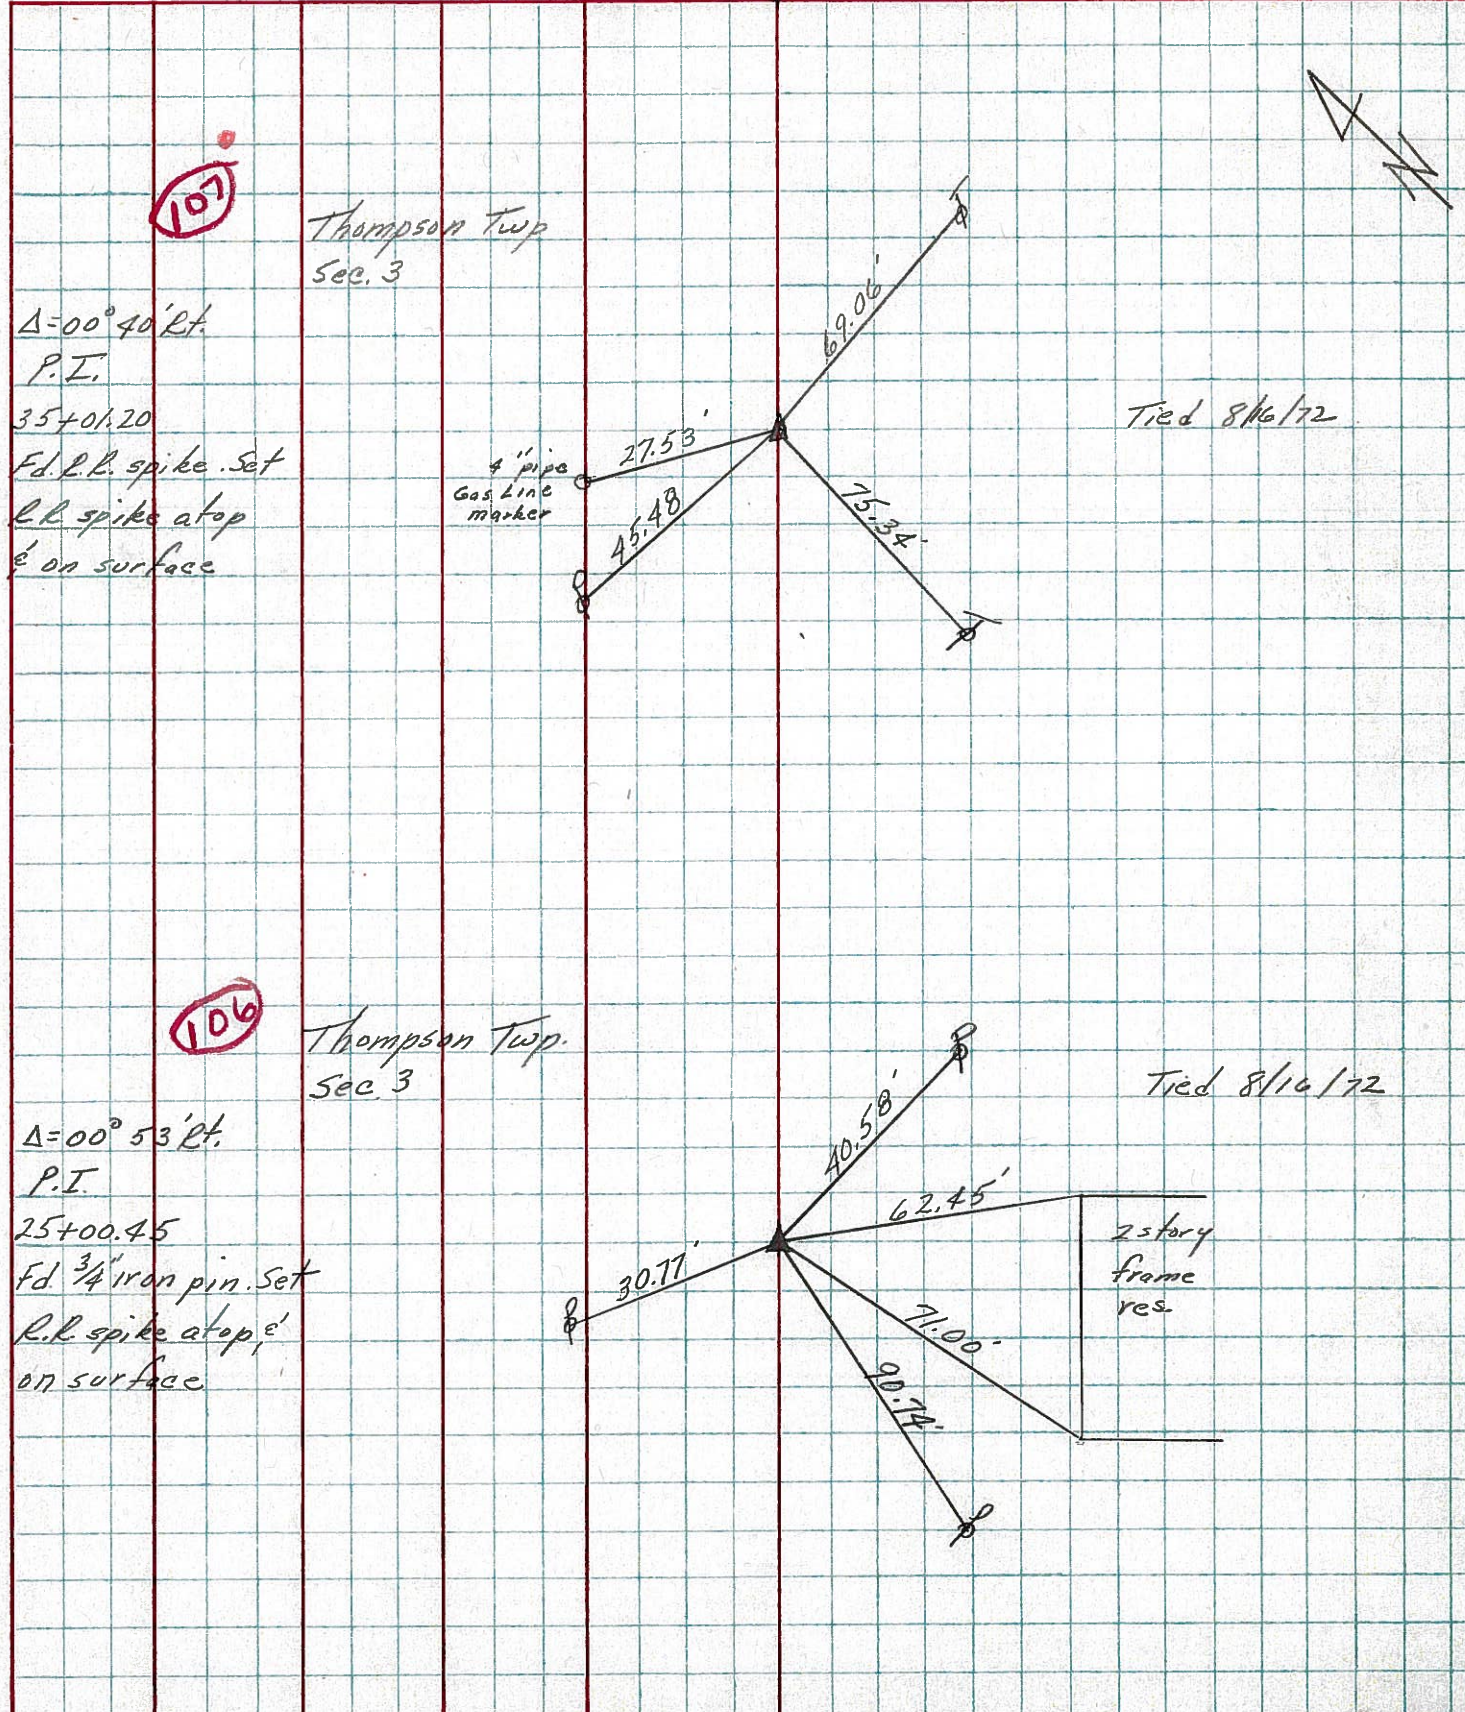 107
Thompson Twp
Sec. 3
Δ=00°40' Rt.
P.I.
35+01.20
Fd. R.R. spike. Set
RR spike atop
& on surface
69.06'
27.53'
4" pipe
Gas Line
marker
45.48
75.34'
Tied 8/16/72
N
106
Thompson Twp.
Sec. 3
Δ=00°53' Rt.
P.I.
25+00.45
Fd. 3/4" iron pin. Set
R.R. spike atop, &
on surface
40.58'
62.45'
30.77'
71.00'
90.74'
2 story
frame
res.
Tied 8/16/72